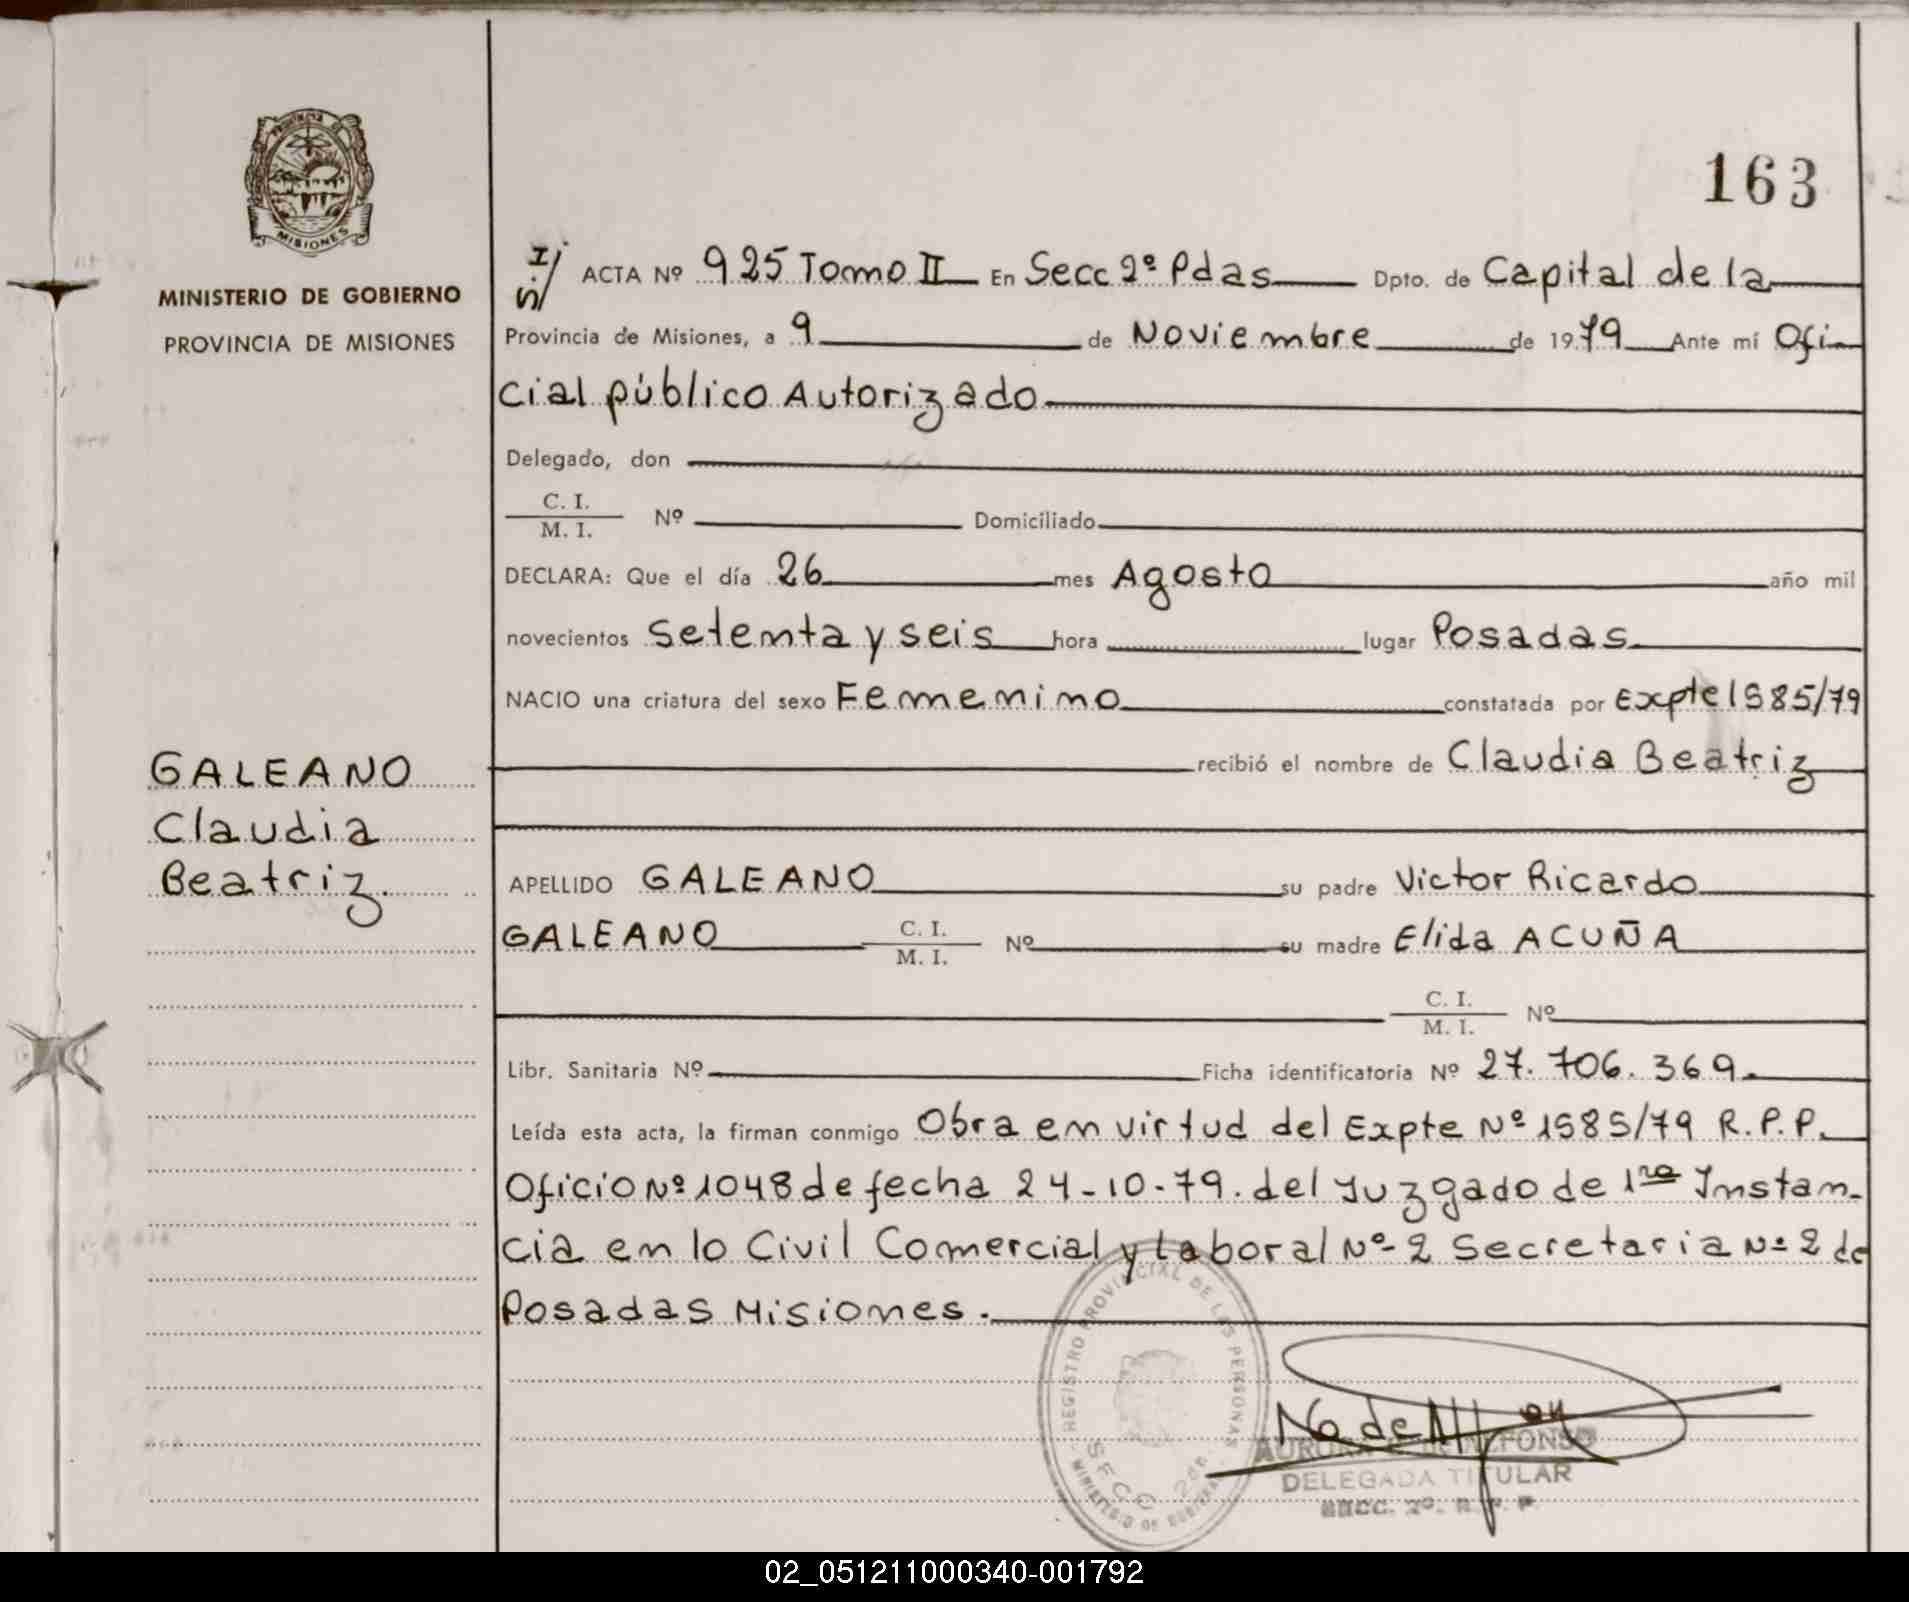 PROVINCIA DE
MISIONES
MINISTERIO DE GOBIERNO
PROVINCIA DE MISIONES
163
S.I/ ACTA Nº 925 Tomo II En Secc 2º Pdas Dpto. de Capital de la
Provincia de Misiones, a 9 de Noviembre de 1979 Ante mí Ofi
cial público Autorizado
Delegado, don
C. I.
M. I. Nº Domiciliado
DECLARA: Que el día 26 mes Agosto año mil
novecientos Setenta y seis hora lugar Posadas
NACIO una criatura del sexo Femenino constatada por Expte 1585/79
recibió el nombre de Claudia Beatriz
GALEANO
Claudia
Beatriz.
APELLIDO GALEANO su padre Victor Ricardo
GALEANO C. I.
M. I. Nº su madre Elida ACUÑA
C. I.
M. I. Nº
Libr. Sanitaria Nº Ficha identificatoria Nº 27.706.369.
Leída esta acta, la firman conmigo Obra en virtud del Expte Nº 1585/79 R.P.P.
Oficio Nº 1048 de fecha 24-10-79. del Juzgado de 1ra Instan-
cia en lo Civil Comercial y Laboral Nº-2 Secretaria Nº 2 de
Posadas Misiones.
REGISTRO PROVINCIAL DE LAS PERSONAS
SECC 2da.
MINISTERIO DE GOBIERNO
DELEGADA TITULAR
SECC. 2ª. R. P. P
02_051211000340-001792